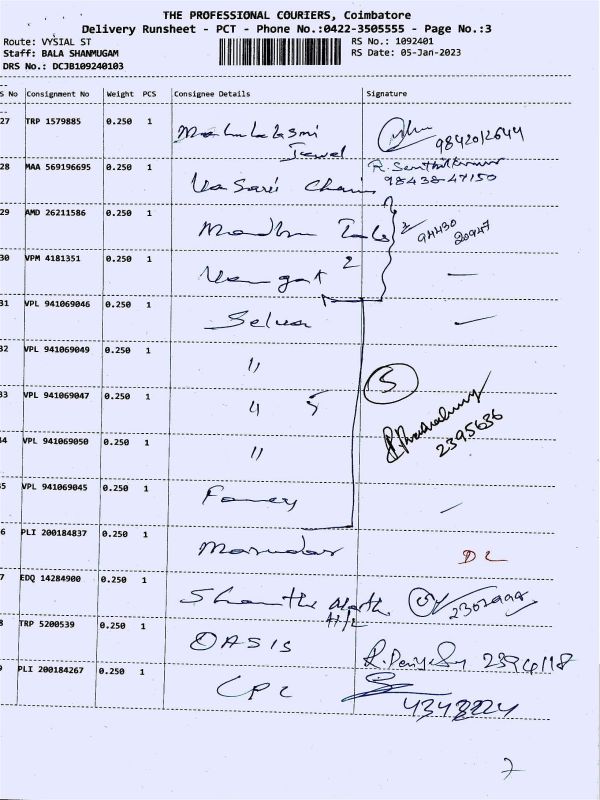 THE PROFESSIONAL COURIERS, Coimbatore
Delivery Runsheet - PCT - Phone No.:0422-3505555 - Page No.:3
Route: VYSIAL ST RS No.: 1092401
Staff: BALA SHANMUGAM RS Date: 05-Jan-2023
DRS No.: DCJB109240103
S No Consignment No Weight PCS Consignee Details Signature
27 TRP 1579885 0.250 1 Mahalakshmi
Jewel 9842012644
28 MAA 569196695 0.250 1 R. Senthilkumar
98438-47150
29 AMD 26211586 0.250 1 2 94430
20947
30 VPM 4181351 0.250 1 2 —
31 VPL 941069046 0.250 1 Selva
32 VPL 941069049 0.250 1 "
33 VPL 941069047 0.250 1 " 5 5
34 VPL 941069050 0.250 1 " 2395636
35 VPL 941069045 0.250 1 Fancy
6 PLI 200184837 0.250 1 DL
7 EDQ 14284900 0.250 1 2302998
8 TRP 5200539 0.250 1 OASIS 2394118
9 PLI 200184267 0.250 1 CPC